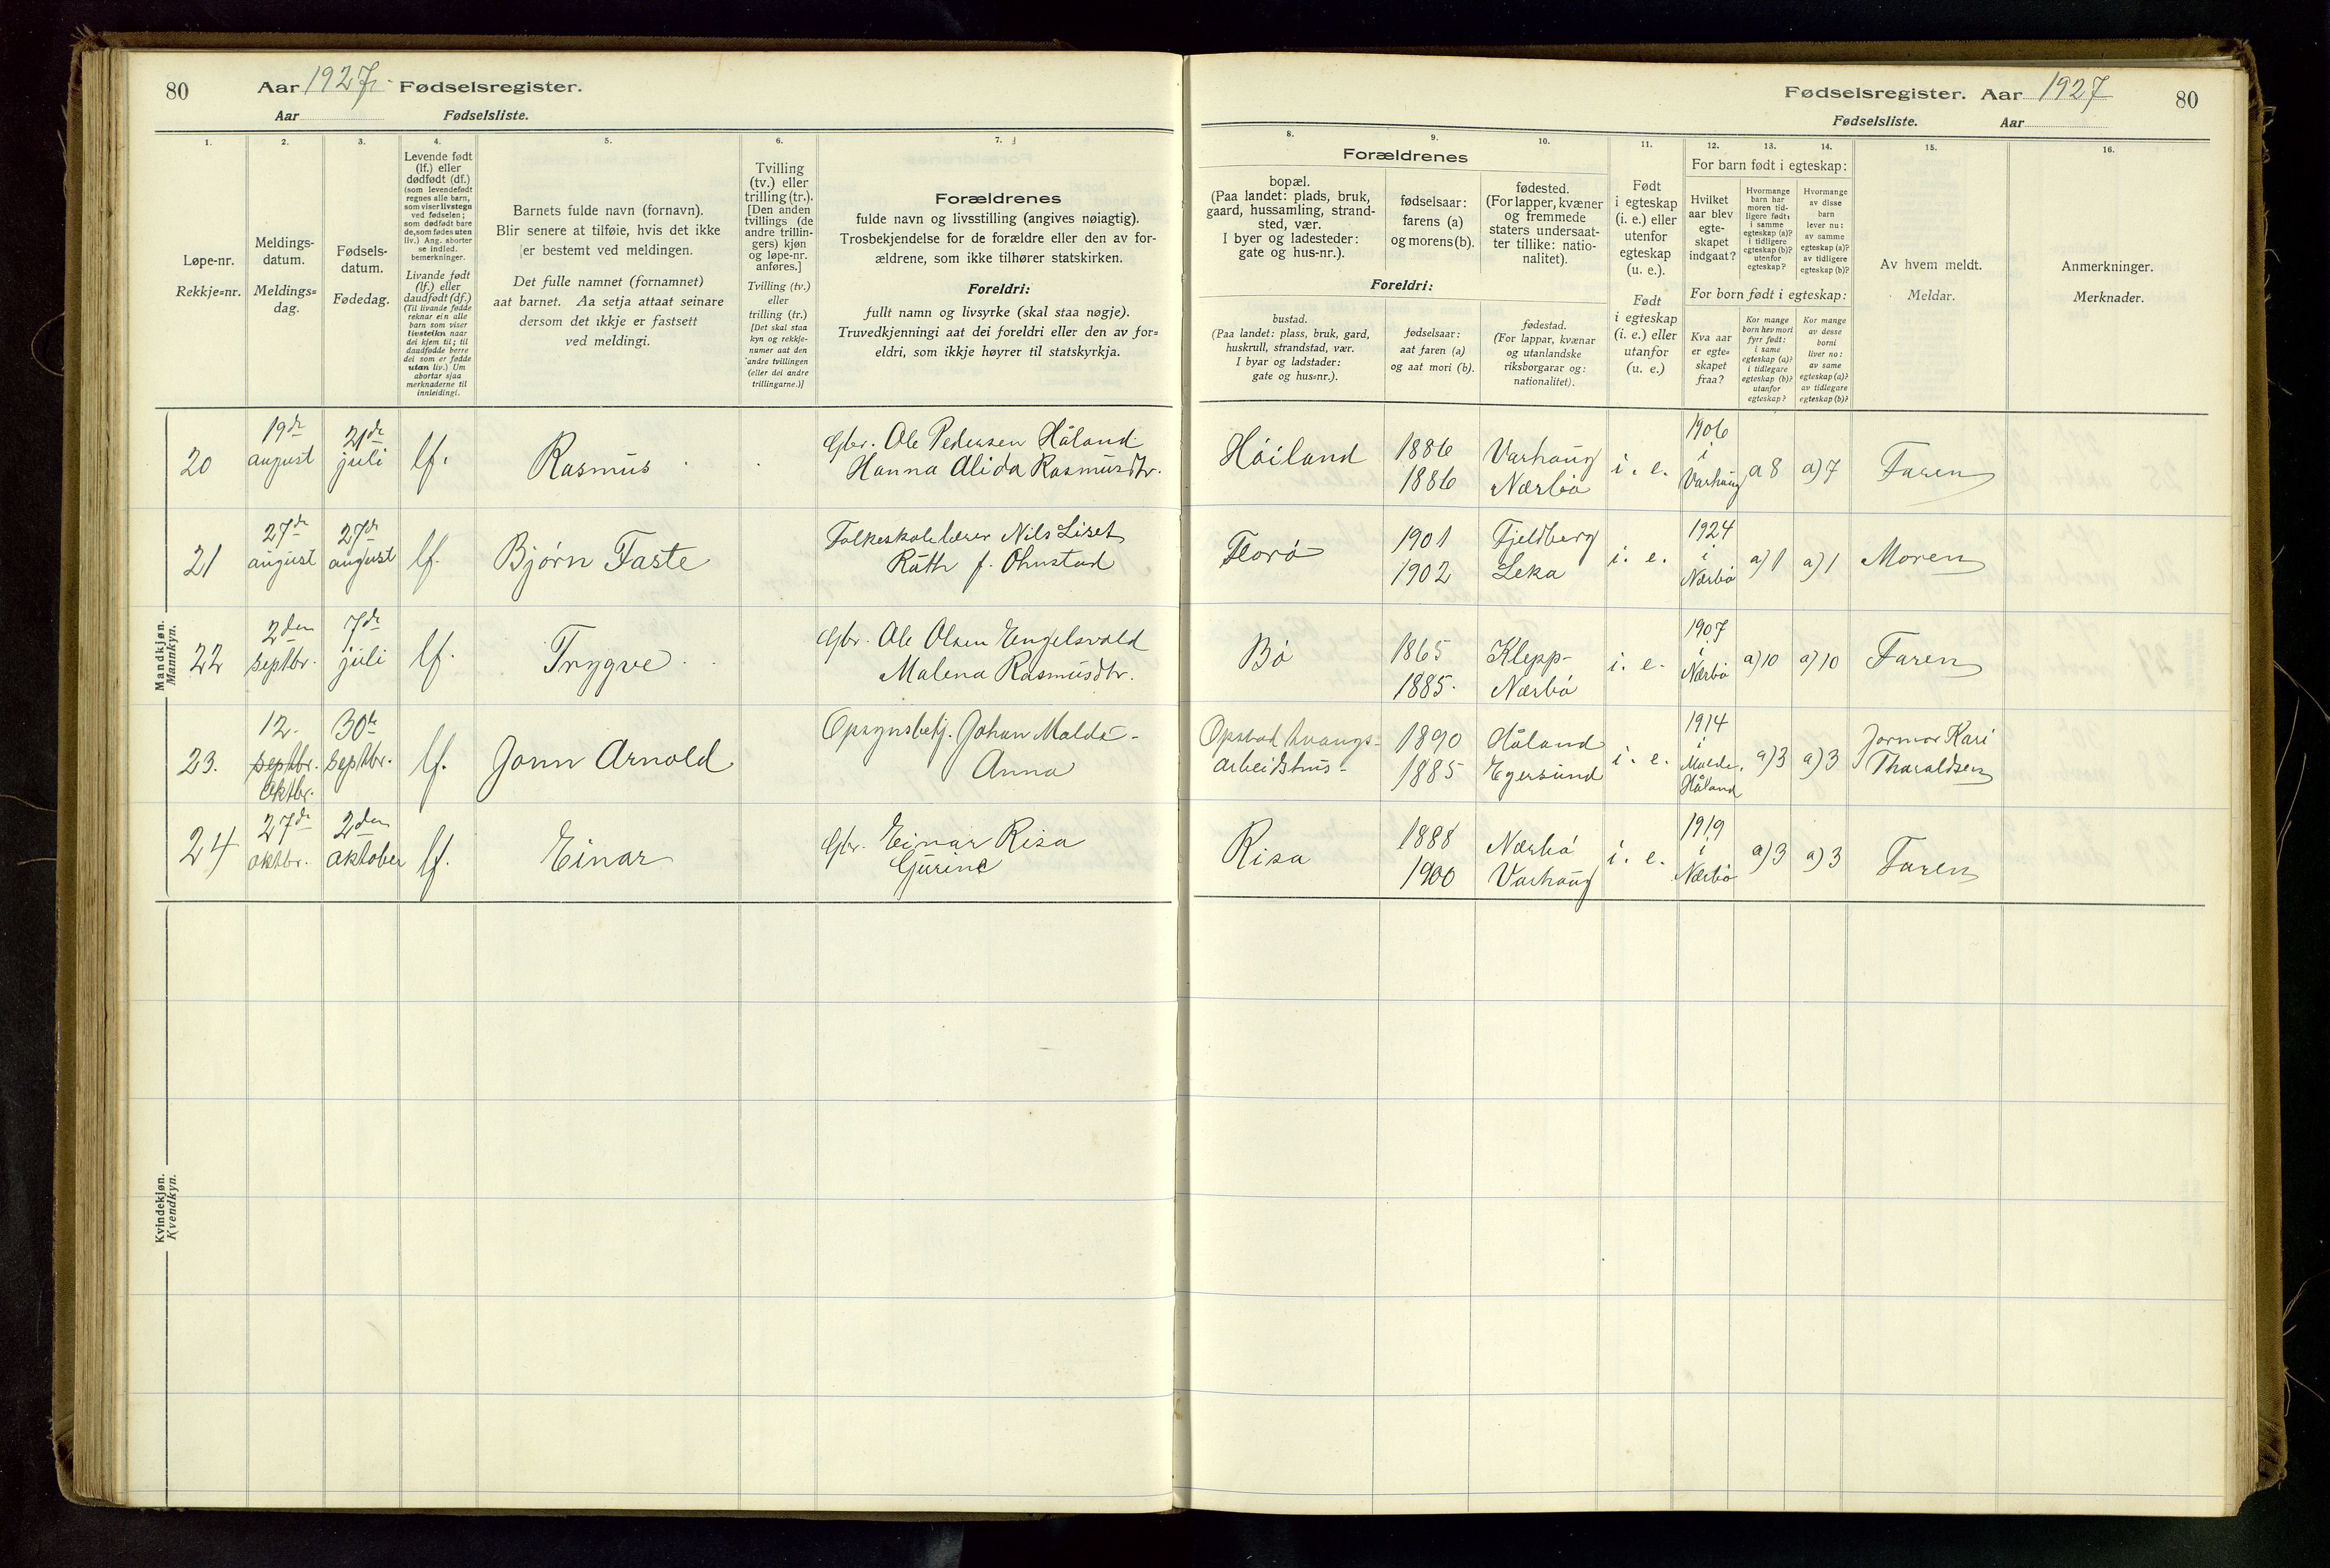 80 Aar 1927. Fødselsregister.
Aar Fødselsliste.
Fødselsregister. Aar 1927 80
Fødselsliste. Aar
1. 2. 3. 4. 5. 6. 7.
Løpe-nr.
Rekkje=nr.
Meldings-
datum.
Meldings=
dag.
Fødsels-
datum.
Fødedag.
Levende født
(lf.) eller
dødfødt (df.)
(som levendefødt
regnes alle barn,
som viser livstegn
ved fødselen;
som dødfødt bare
de, som fødes uten
liv.) Ang. aborter
se indled.
bemerkninger.
Livande født
(lf.) eller
daudfødt (df.)
(Til livande fødde
reknar ein alle
barn som viser
livsteikn naar
dei kjem til; til
daudfødde berre
dei som er fødde
utan liv.) Um
abortar sjaa
merknaderne til
innleidingi.
Barnets fulde navn (fornavn).
Blir senere at tilføie, hvis det ikke
er bestemt ved meldingen.
Det fulle namnet (fornamnet)
aat barnet. Aa setja attaat seinare
dersom det ikkje er fastsett
ved meldingi.
Tvilling
(tv.) eller
trilling (tr.).
[Den anden
tvillings (de
andre trillin-
gers) kjøn
og løpe-nr.
anføres.]
Tvilling (tv.)
eller
trilling (tr.)
[Det skal staa
kyn og rekkje-
numer aat den
andre tvillingen
(eller dei andre
trillingarne.)]
Forældrenes
fulde navn og livsstilling (angives nøiagtig).
Trosbekjendelse for de forældre eller den av for-
ældrene, som ikke tilhører statskirken.
Foreldri:
fullt namn og livsyrke (skal staa nøgje).
Truvedkjenningi aat dei foreldri eller den av for=
eldri, som ikkje høyrer til statskyrkja.
8. 9. 10. 11. 12. 13. 14. 15. 16.
Forældrenes
bopæl.
(Paa landet: plads, bruk,
gaard, hussamling, strand-
sted, vær.
I byer og ladesteder:
gate og hus-nr.).
fødselsaar:
farens (a)
og morens (b).
fødested.
(For lapper, kvæner
og fremmede
staters undersaat-
ter tillike: natio-
nalitet).
Foreldri:
bustad.
(Paa landet: plass, bruk, gard,
huskrull, strandstad, vær.
I byar og ladstader:
gate og hus=nr.).
fødselsaar:
aat faren (a)
og aat mori (b).
fødestad.
(For lappar, kvænar
og utanlandske
riksborgarar og:
nationalitet).
Født
i egteskap
(i. e.) eller
utenfor
egteskap
(u. e.).
Født
i egteskap
(i. e.) eller
utanfor
(u. e.)
For barn født i egteskap:
Hvilket
aar blev
egte-
skapet
indgaat?
Hvormange
barn har
moren tid-
ligere født:
i samme
egteskap (a)?
i tidligere
egteskap (b)?
utenfor
egteskap?
Hvormange
av disse
barn
lever nu:
av samme
egteskap (a)?
av tidligere
egteskap (b)?
For born født i egteskap:
Kva aar
er egte=
skapet
fraa?
Kor mange
born hev mori
fyrr født:
i same
egteskap (a)?
i tidlegare
egteskap (b)?
utanfor
egteskap?
Kor mange
av desse
borni
liver no:
av same
egteskap (a)?
av tidlegare
egteskap (b)?
Av hvem meldt.
Meldar.
Anmerkninger.
Merknader.
Mandkjøn.
Mannkyn.
20 19de august 21de juli lf. Rasmus Gbr. Ole Pedersen Håland
Hanna Alida Rasmusdtr.
Høiland 1886 Varhaug i. e. 1906 i Varhaug a 8 a) 7 Faren
1886 Nærbø
21 27de august 27de august lf. Bjørn Faste Folkeskolelærer Nils Liset
Ruth f. Ohnstad
Florø 1901 Fjeldberg i. e. 1924 i Nærbø a) 1 a) 1 Moren
1902 Leka
22 2den septbr. 7de juli lf. Trygve Gbr. Ole Olsen Engelsvold
Malena Rasmusdtr.
Bø 1865 Klepp- i. e. 1907 i Nærbø a) 10 a) 10 Faren
1885. Nærbø
23. 12. septbr. oktbr. 30te septbr. lf. Jonn Arnold Opsynsbetj. Johan Malde -
Anna
Opstad tvangs-
arbeidshus - 1890 Håland i. e. 1914 i Malde, Håland a) 3 a) 3 Jormor Kari
1885 Egersund Tharaldsen
24 27de oktbr. 2den oktober lf. Einar Gbr. Einar Risa
Gurine
Risa 1888 Nærbø i. e. 1919 i Nærbø a) 3 a) 3 Faren
1900 Varhaug
Kvindekjøn.
Kvendkyn.